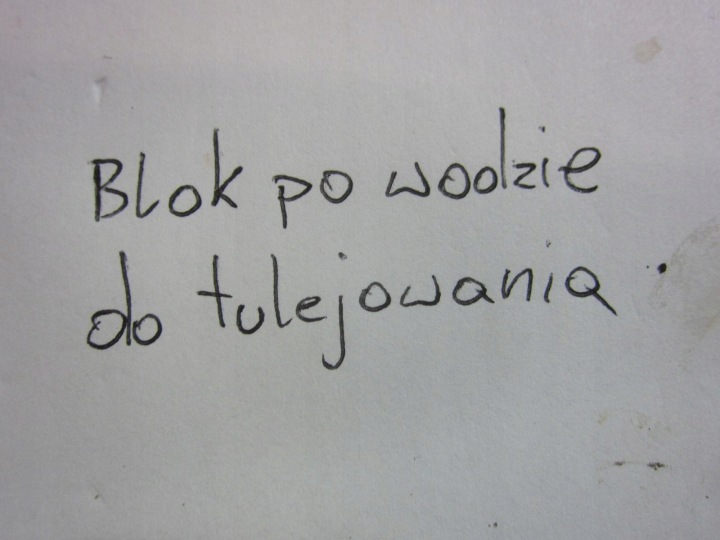 Blok po wodzie
do tulejowania